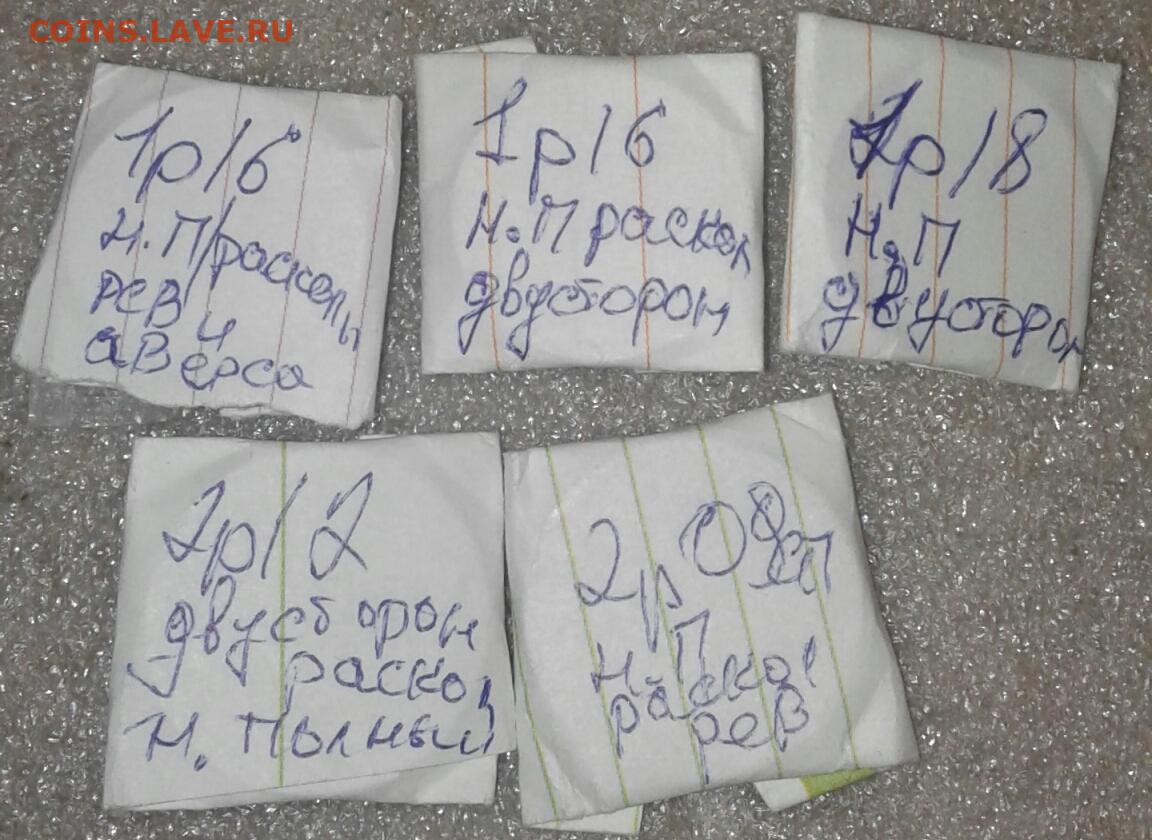 COINS.LAVE.RU
1р16
н.П/расколы
рев и
аверса
1р16
н.П раскол
двусторон
1р18
н.П
двусторон
2р12
двусторон
раскол
н. полный
2р 09 сп
н.П
раскол
рев